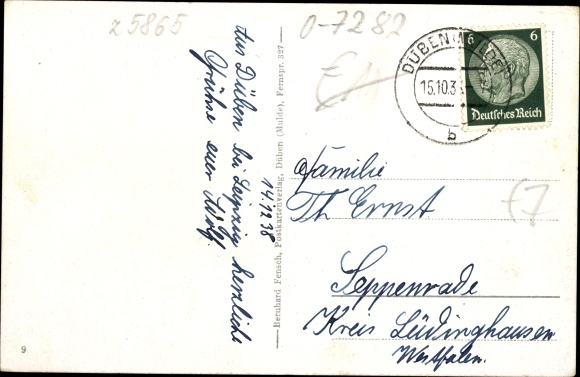 z 5865
0-7282
Aus Düben bei Leipzig herzliche
Grüße euer Wolf.
14.12.38
Bernhard Fensch, Postkartenverlag, Düben (Mulde), Fernspr. 327
DÜBEN
15.10.3
b
6 6
Deutsches Reich
Familie
Th. Ernst
Seppenrade
Kreis Lüdinghausen
Westfalen.
9